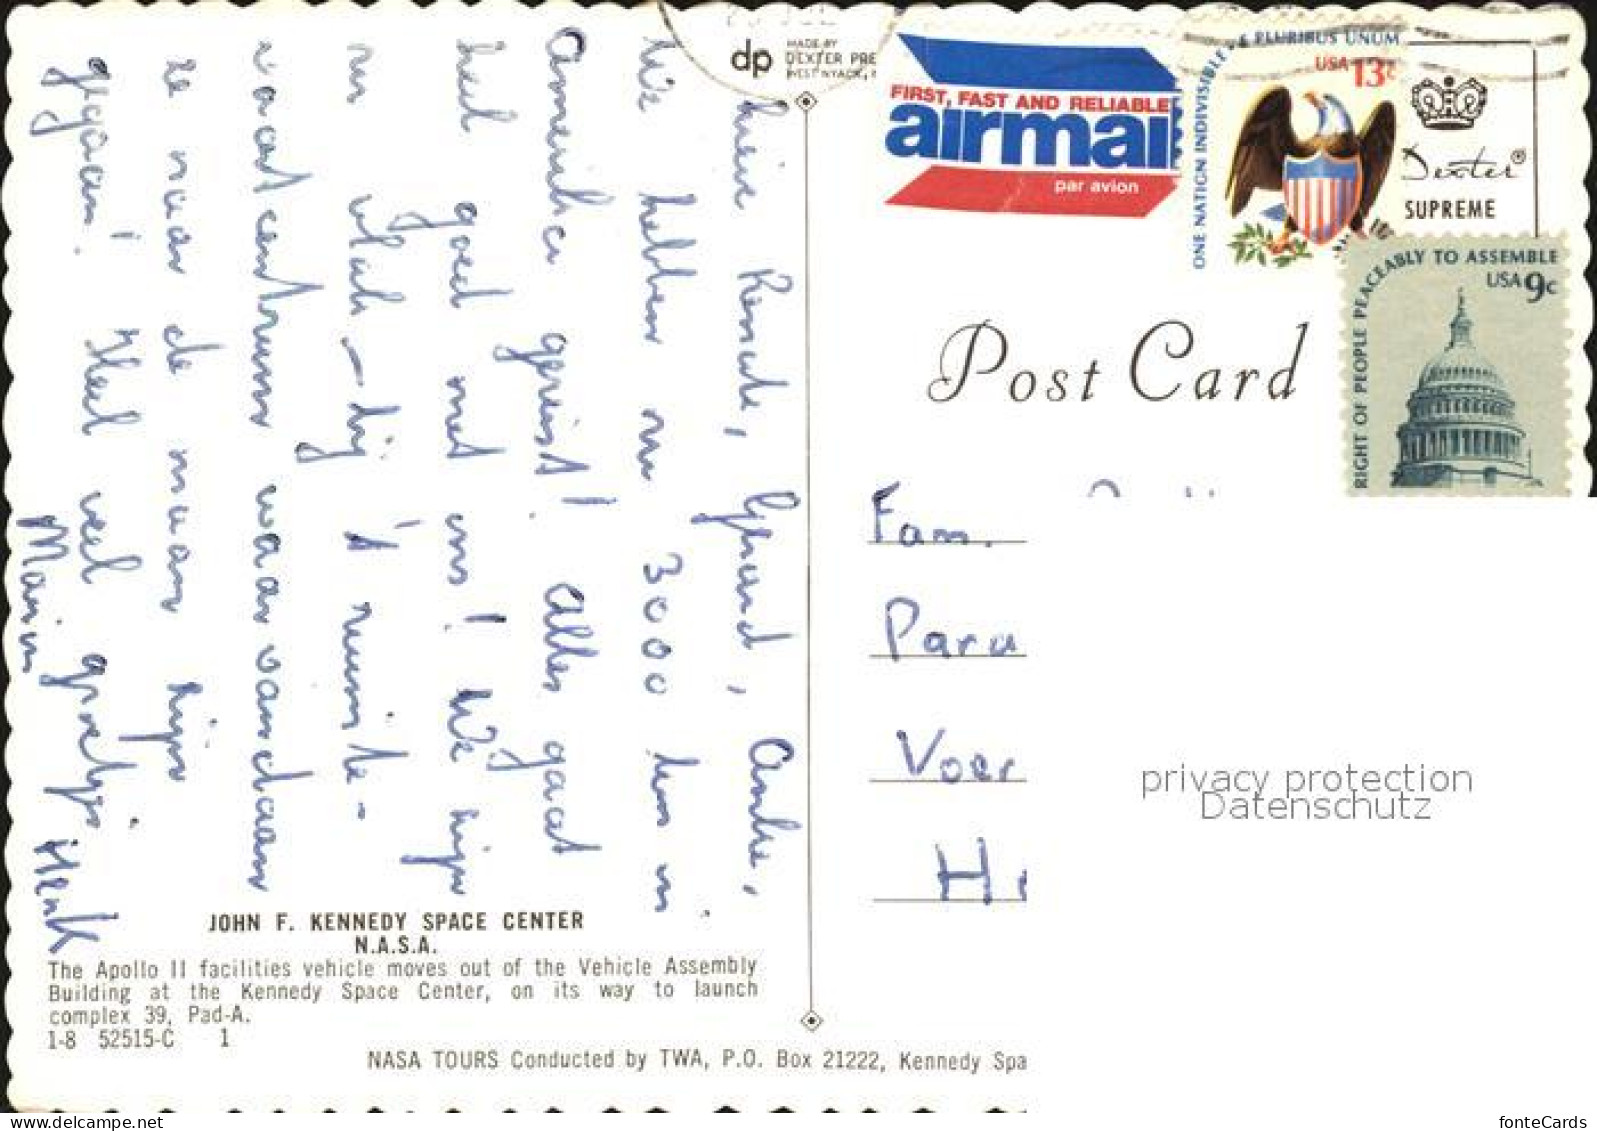 MADE BY
dp DEXTER PRE
WEST NYACK,
FIRST, FAST AND RELIABLE
airmail
par avion
ONE NATION INDIVISIBLE
E PLURIBUS UNUM
USA 13c
Dexter®
SUPREME
RIGHT OF PEOPLE PEACEABLY TO ASSEMBLE
USA 9c
Post Card
Lieve Renate, Gerard, Andre,
We hebben nu 3000 km in
Amerika gereisd! Alles gaat
heel goed met ons! We zijn
nu vlak-bij 't ruimte-
vaartcentrum waarvandaan
ze naar de maan zijn
gegaan! Heel veel groetjes
Marion Henk
Fam.
Para
Voer
H
JOHN F. KENNEDY SPACE CENTER
N.A.S.A.
The Apollo 11 facilities vehicle moves out of the Vehicle Assembly
Building at the Kennedy Space Center, on its way to launch
complex 39, Pad-A.
1-8 52515-C 1
NASA TOURS Conducted by TWA, P.O. Box 21222, Kennedy Spa
privacy protection
Datenschutz
www.delcampe.net
fonteCards